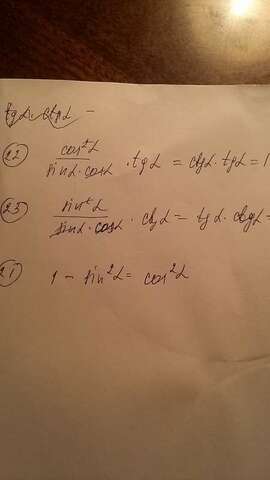 tgα · ctgα −
22 cos²α / sinα·cosα · tgα = ctgα · tgα = 1
23 sin²α / sinα·cosα · ctgα = tgα · ctgα =
21 1 − sin²α = cos²α